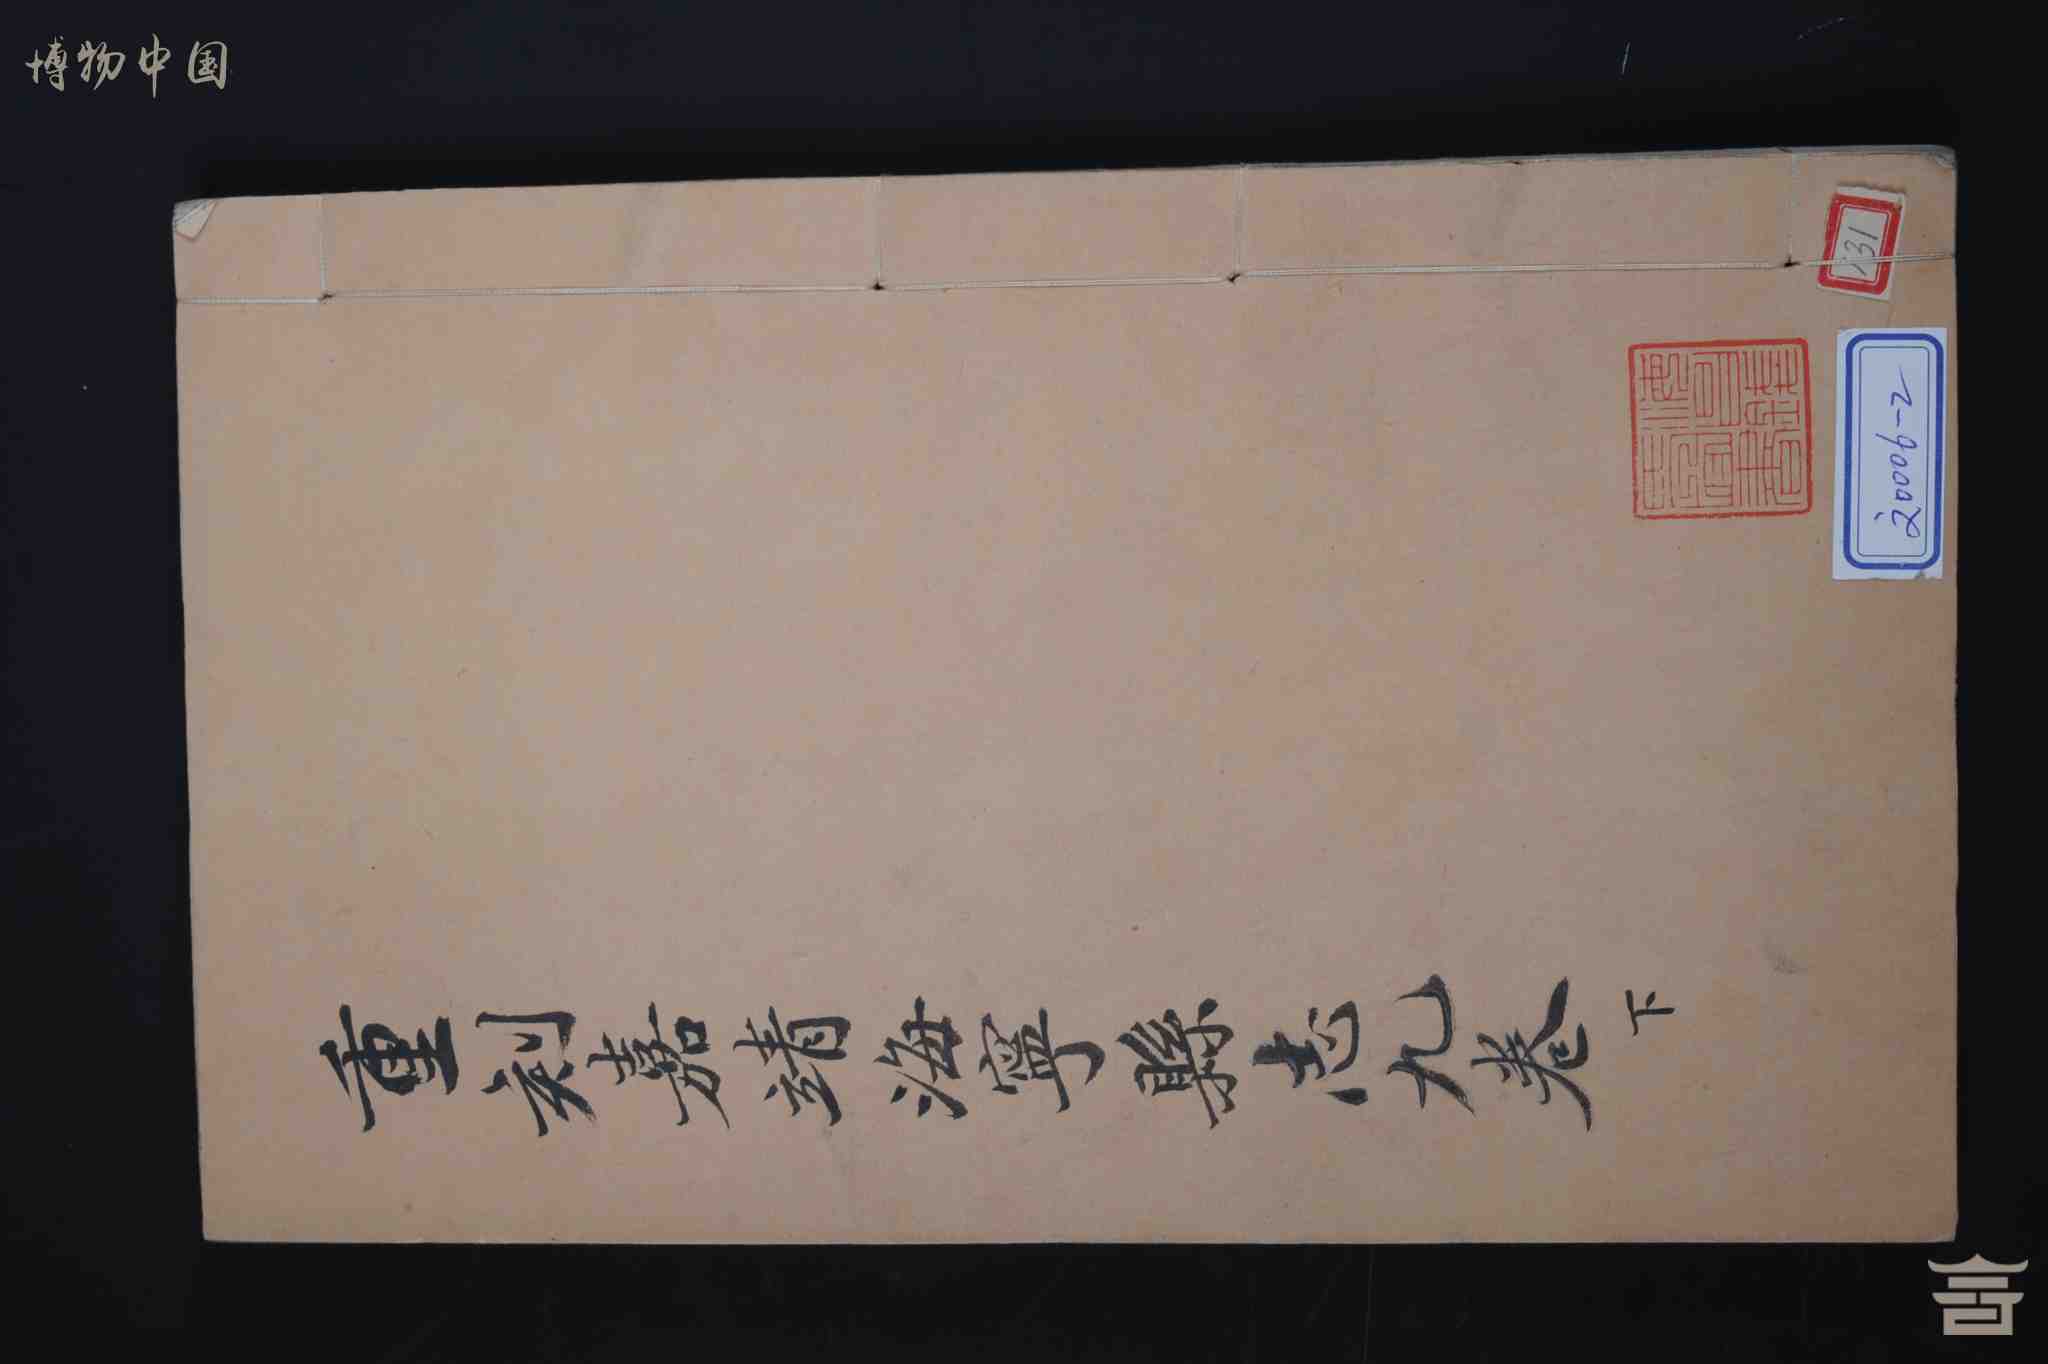 博物中国
重刻嘉靖海寧縣志九卷 下
131